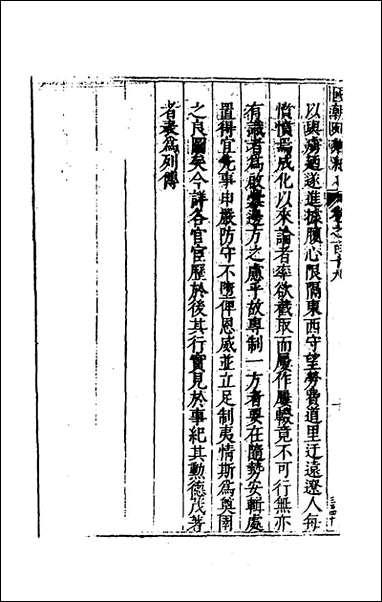 國朝典彙卷之一百十九
以與虜廼遂進據腹心限隔東西守望勞費道里迂遠遼人每
憤憤焉成化以來論者率欲截取而屢作屢輟竟不可行無亦
有識者爲啟釁邊方之慮乎故專制一方者要在隨勢安輯處
置得宜先事申嚴防守不墮俾恩威並立足制夷情斯爲奠圉
之良圖矣今詳各官宦歷於後其行實見於事紀其勲德茂著
者表爲列傳